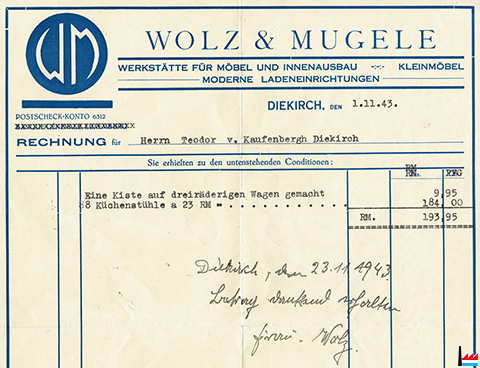 WM
WOLZ & MUGELE
WERKSTÄTTE FÜR MÖBEL UND INNENAUSBAU -:- KLEINMÖBEL
MODERNE LADENEINRICHTUNGEN
DIEKIRCH, DEN 1.11.43.
POSTSCHECK-KONTO 6312
RECHNUNG für Herrn Teodor v. Kaufenbergh Diekirch
Sie erhielten zu den untenstehenden Conditionen:
RM
Eine Kiste auf dreiräderigen Wagen gemacht 9,95
8 Küchenstühle a 23 RM = . . . . . . . . . . . 184,00
RM. 193,95
Diekirch, den 23.11.1943
Betrag dankend erhalten
Wolz